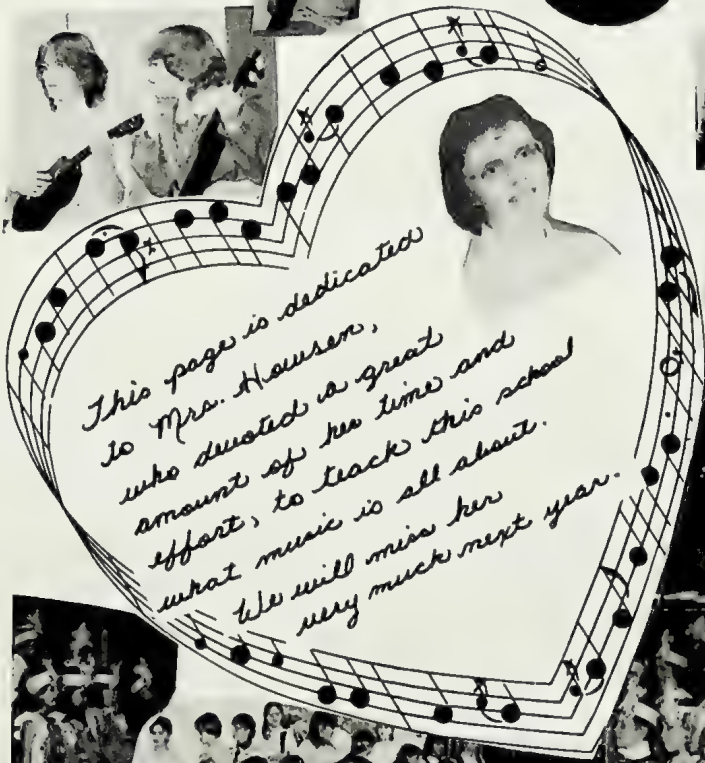 This page is dedicated
to Mrs. Howsen,
who devoted a great
amount of her time and
effort, to teach this school
what music is all about.
We will miss her
very much next year.